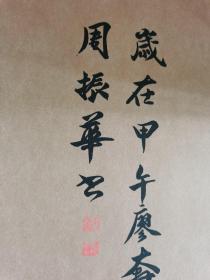 歲在甲午廖奔
周振華書